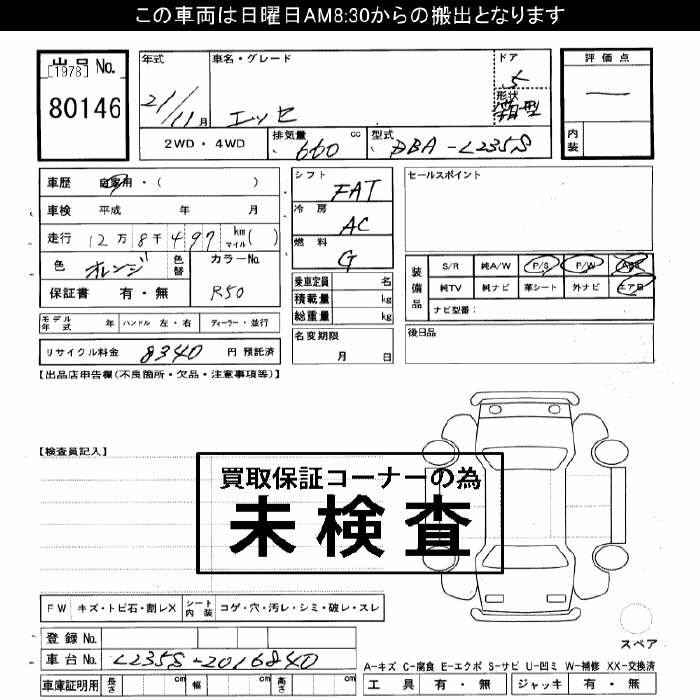 この車両は日曜日AM8:30からの搬出となります
出品 No.
[1978]
80146
年式 21/11月
車名・グレード エッセ
ドア 5
形状 箱型
評価点 —
内装
2WD・4WD
排気量 660 cc
型式 DBA-L235S
車歴 自家用・( )
車検 平成 年 月
走行 12万8千497 km マイル ( )
色 オレンジ 色替
カラーNo. R50
保証書 有・無
シフト FAT
冷房 AC
燃料 G
乗車定員 名
積載量 kg
総重量 kg
セールスポイント
装備品
S/R 純A/W P/S P/W ABS
純TV 純ナビ 革シート 外ナビ エアB
ナビ型番:
モデル年式 年 ハンドル 左・右 ディーラー・並行
リサイクル料金 8340 円 預託済
名変期限 月 日
後日品
【出品店申告欄(不良箇所・欠品・注意事項等)】
【検査員記入】
買取保証コーナーの為
未検査
FW キズ・トビ石・割レX シート内装 コゲ・穴・汚レ・シミ・破レ・スレ
登録 No.
車台 No. L235S-2016840
車庫証明用 長さ cm 幅 cm 高さ cm
スペア
A-キズ C-腐食 E-エクボ S-サビ U-凹ミ W-補修 XX-交換済
工具 有・無 ジャッキ 有・無